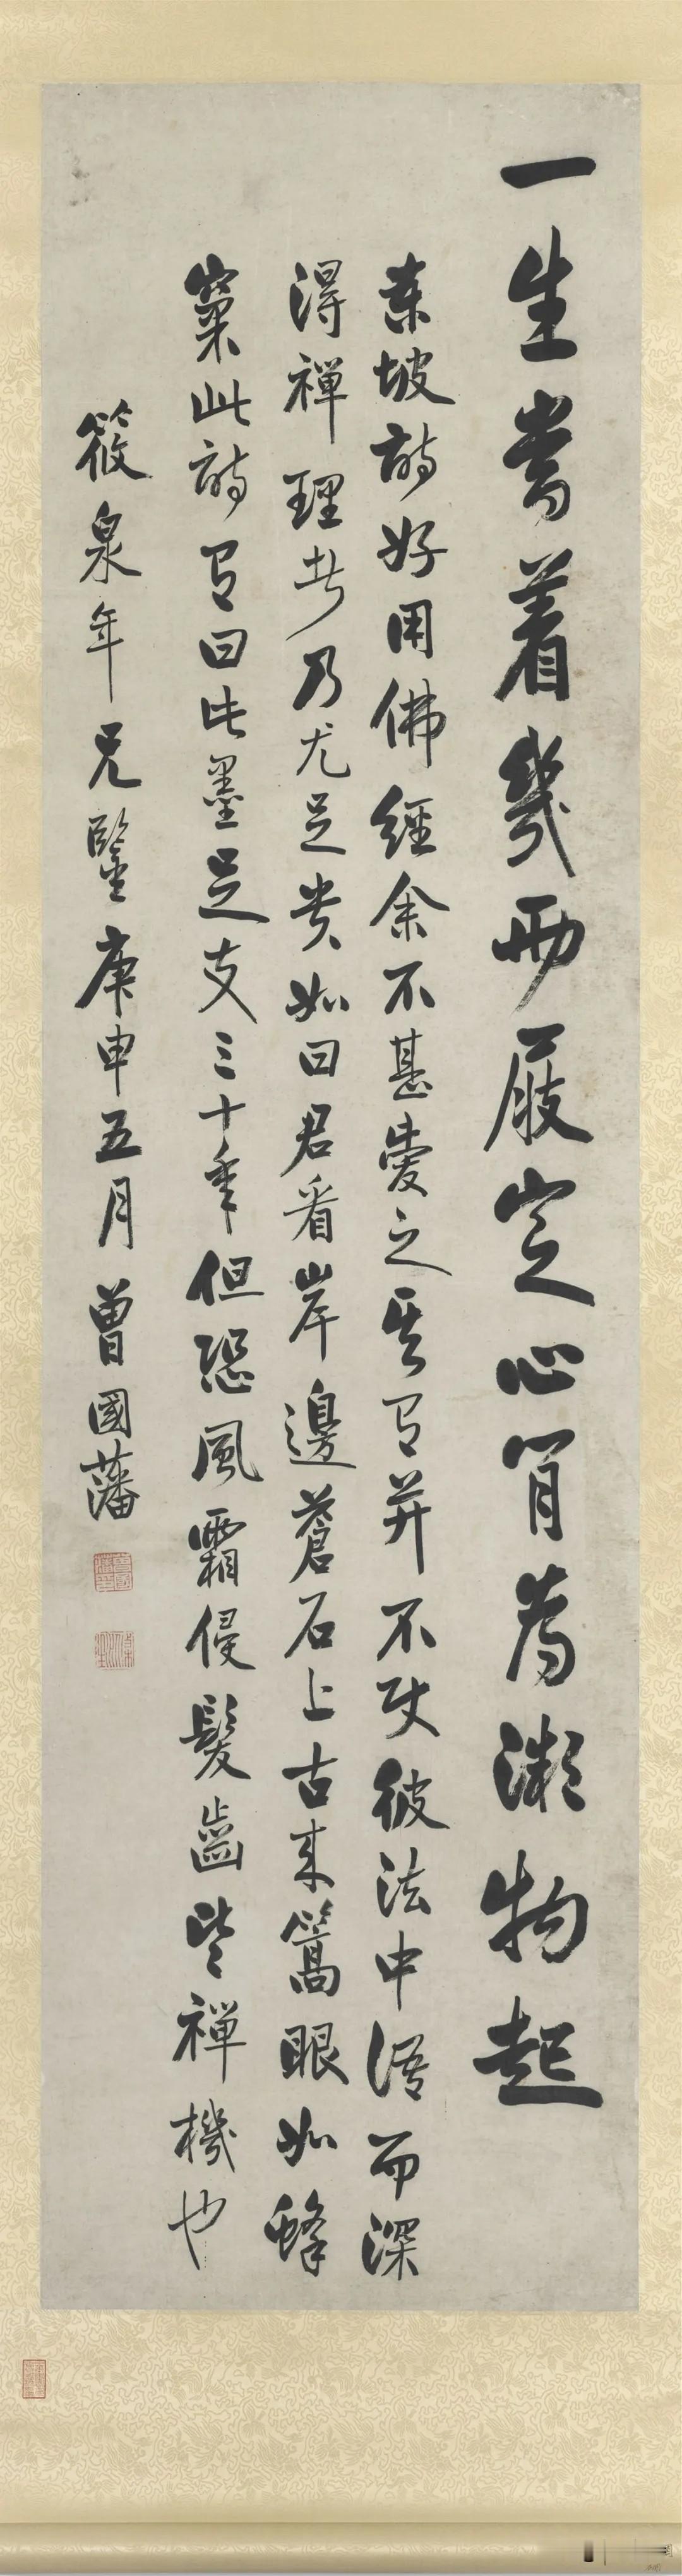 一生當着幾兩屐定心肯為微物起
東坡詩好用佛經余不甚愛之其有并不使彼法中語而深
得禪理者乃尤足貴如曰君看岸邊蒼石上古來篙眼如蜂
窠此詩有曰此墨足支三十年但恐風霜侵髮齒皆禪機也
筱泉年兄鑒庚申五月曾國藩